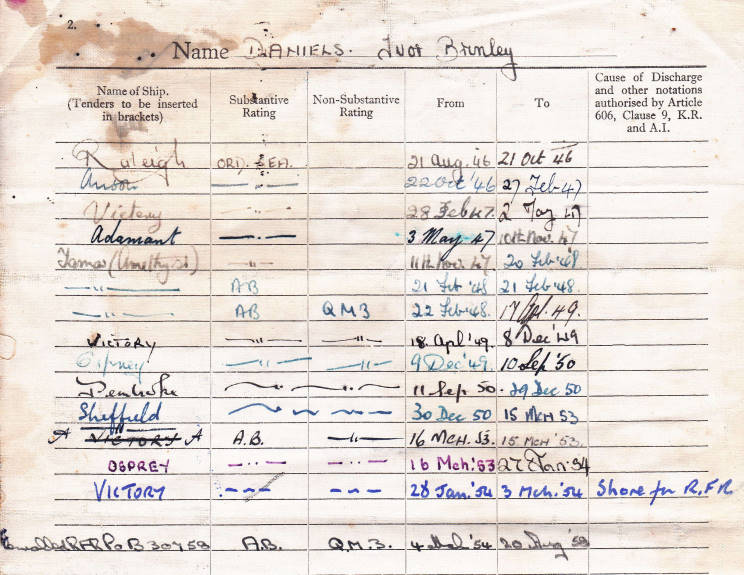 2.
Name DANIELS. Ivor Brinley
Name of Ship. (Tenders to be inserted in brackets) Substantive Rating Non-Substantive Rating From To Cause of Discharge and other notations authorised by Article 606, Clause 9, K.R. and A.I.
Raleigh ORD. SEA. 21 Aug. 46 21 Oct 46
Anson —〃— 22 Oct '46 27 Feb 47
Victory —〃— 28 Feb 47. 2 May 47
Adamant —.— 3 May 47 10th Nov. 47
Tamar (Amethyst) —〃— 11th Nov. 47. 20 Feb '48
—〃— AB 21 Feb '48 21 Feb '48.
—〃— AB QM3 22 Feb '48. 17 Apl. 49.
VICTORY —〃— —〃— 18 Apl '49. 8 Dec '49
—〃— —〃— 9 Dec '49. 10 Sep '50
Pembroke —〃— —〃— 11 Sep 50. 29 Dec 50
Sheffield 〃 〃 30 Dec 50 15 MCH 53
A VICTORY A A.B. —〃— 16 MCH. 53. 15 MCH '53.
OSPREY —〃— —〃— 16 Mch. '53 27 Jan. 54
VICTORY — — — — — — 28 Jan. '54 3 Mch. '54 Shore for R.F.R
Enrolled RFR Po B 30758 A.B. Q.M.3. 4 Mch '54 20 Aug '58